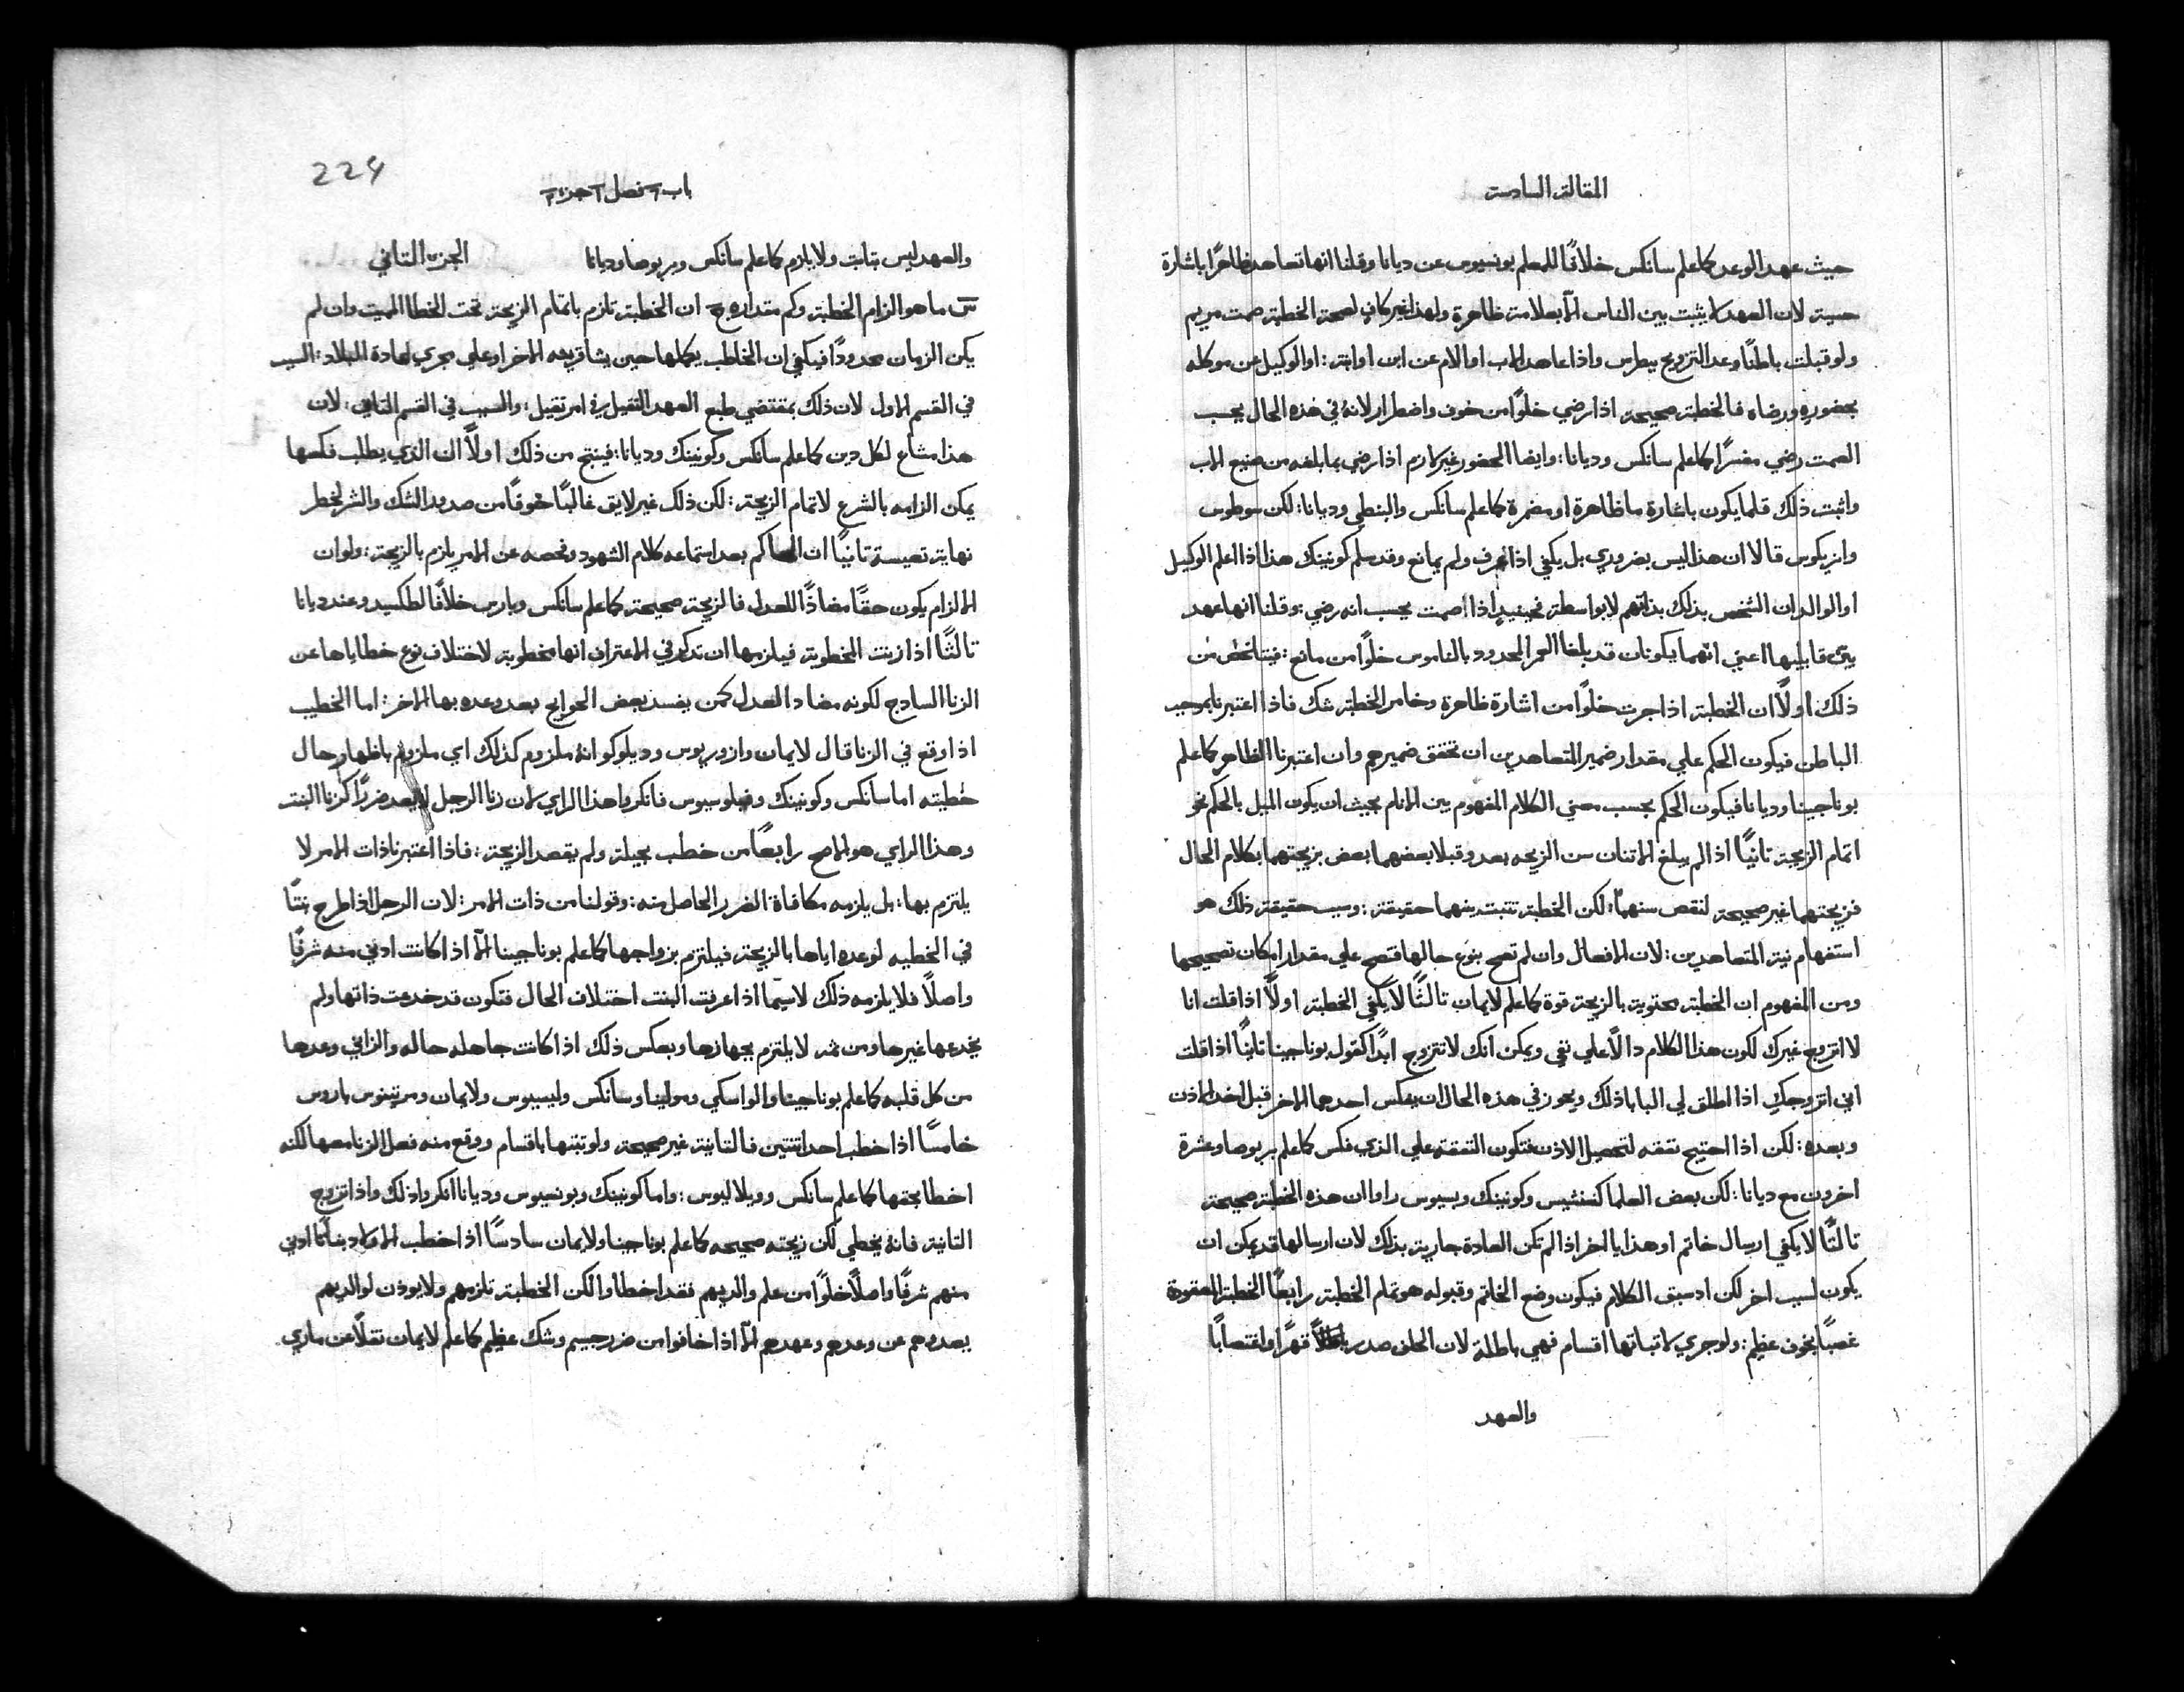 المقالة السادسة
حيث عهد الوعد كما علم سانكس خلافًا للمعلم بونسيوس عن ديانا وقلنا انها تعاهد ظاهرًا باشارة
حسية لان العهد لا يثبت بين الناس الّا بعلامة ظاهرة ولهذا غير كافٍ لصحة الخطبة صمت مريم
ولو قبلت باطنًا وعد التزويج ببطرس واذا عاهد الاب او الام عن ابن او ابنة: او الوكيل عن موكله
بحضورهِ ورضاه فالخطبة صحيحة اذا رضي خلوًا من خوف واضطرار لانهُ في هذه الحال يحسب
الصمت رضي مفسرًا كما علم سانكس وديانا: وايضا الحضور غير لازم اذا رضي بما بلغه من صنيع الاب
واثبت ذلك قلما يكون باشارة ما ظاهرة او مضمرة كما علم سانكس والبنطي وديانا: لكن سوطوس
وانريكوس قالا ان هذا ليس بضروري بل يكفي اذا عرف ولم يمانع وقد سلم كونينك هذا اذا اعلم الوكيل
او الوالدان الشخص بذلك بذاتهم لا بواسطة فحينيذٍ اذا صمت يحسب انه رضي: وقلنا انها عهد
بين قابليها اعني انهما يكونان قد بلغا العمر المحدود بالناموس خلوًا من مانع: فيتلخص من
ذلك اولًا ان الخطبة اذا جرت خلوًا من اشارة ظاهرة وخامر الخطبة شك فاذا اعتبرنا بموجب
الباطن فيكون الحكم علي مقدار ضمير المتعاهدين ان تحقق ضميرهم وان اعتبرنا الظاهر كما علم
بوناجينا وديانا فيكون الحكم بحسب معني الكلام المفهوم بين الانام بحيث ان يكون الميل بالحكم نحو
اتمام الزيجة ثانيًا اذ الم يبلغ الاثنان سن الزيجه بعد وقبلا بعضهما بعض بزيجتهما بكلام الحال
فزيجتهما غير صحيحة لنقص سنهما: لكن الخطبة تثبت بينهما حقيقة: وسبب حقيقة ذلك هو
استفهام نية المتعاهدين: لان الافعال وان لم تصح بنوع حالها فتصح علي مقدار امكان تصحيحها
ومن المفهوم ان الخطبة محتوية بالزيجة قوة كما علم لايمان ثالثًا لا يكفي الخطبة اولًا اذا قلت انا
لا اتزوج غيرك لكون هذا الكلام دالًا علي نفي ويمكن انك لا تتزوج ابدًا كقول بوناجينا ثانيًا اذا قلت
اني اتزوجكِ اذا اطلق لي البابا ذلك ويجوز في هذه الحال ان يفكس احدهما الاخر قبل اخد الاذن
وبعده: لكن اذا احتيج نفقه لتحصيل الاذن فتكون النفقة علي الذي فكس كما علم بربوصا وعشرة
اخرون مع ديانا: لكن بعض العلما كسنشيس وكونينك وبسيوس راوا ان هذه الخطبة صحيحة
ثالثًا لا يكفي ارسال خاتم او هدايا اخر اذا لم تكن العادة جارية بذلك لان ارسالها قد يمكن ان
يكون لسبب اخر لكن اذ سبق الكلام فيكون وضع الخاتم وقبوله هو تمام الخطبة رابعًا الخطبة المعقودة
غصبًا بخوف عظيم: ولو جري لاثباتها اقسام فهي باطلة لان الحلف صدر باطلًا قهرًا واغتصابًا
والعهد
224
باب فصل جزء
والعهد ليس بثابت ولا يلزم كما علم سانكس وبربوصا وديانا الجزء الثاني
س ما هو الزام الخطبة وكم مقداره ج ان الخطبة تلزم باتمام الزيجة تحت الخطا المميت وان لم
يكن الزمان محدودًا فيكفي ان الخاطب يكملها حين يشا قرينه الاخر او علي مجري لعادة البلاد: السبب
في القسم الاول لان ذلك بمقتضي طبع العهد الثقيل في امر ثقيل: والسبب في القسم الثاني: لان
هذا مشاع لكل دين كما علم سانكس وكونينك وديانا: فينتج من ذلك اولًا ان الذي يطلب فكسها
يمكن الزامه بالشرع لاتمام الزيجة: لكن ذلك غير لايق غالبًا خوفًا من صدور الشك والشر لخطر
نهاية تعيسة ثانيًا ان الحاكم بعد استماعه كلام الشهود وفحصه عن الامر يلزم بالزيجة: ولو ان
الالزام يكون حقًا مضادًا للعدل فالزيجة صحيحة كما علم سانكس وباريس خلافًا لطكسيد وعند ديانا
ثالثًا اذا زنت المخطوبة فيلزمها ان تذكر في الاعتراف انها مخطوبة لاختلاف نوع خطاياها عن
الزنا السادج لكونه مضاد العدل كمن يفسد بعض الحوايج بعد وعده بها الاخر: اما الخطيب
اذا وقع في الزنا قال لايمان وازوريوس وديلوكو انهُ ملزوم كذلك اي ملزوم باظهار حال
خطيته اما سانكس وكونينك وفيلوسيوس فانكروا هذا الراي لان زنا الرجل لا يعد ضررًا كزنا البنت
وهذا الراي هو الاصح رابعًا من خطب بحيلة ولم يقصد الزيجة: فاذا اعتبرنا ذات الامر لا
يلتزم بها: بل يلزمه مكافاة الضرر الحاصل منه: وقولنا من ذات الامر: لان الرجل اذا طرح بنتًا
في الخطيه لوعده اياها بالزيجة فيلتزم بزواجها كما علم بوناجينا الّا اذا كانت ادني منه شرفًا
واصلًا فلا يلزمه ذلك لاسيّما اذا عرفت البنت اختلاف الحال فتكون قد خدعت ذاتها ولم
يخدعها غيرها ومن ثمَ لا يلتزم بجهازها وبعكس ذلك اذا كانت جاهله حاله والزاني وعدها
من كل قلبه كما علم بوناجينا والواسكي ومولينا وسانكس وليسيوس ولايمان ومرتينوس باروس
خامسًا اذا خطب احد اثنتين فالثانية غير صحيحة ولو ثبتها باقسام ووقع منه فعل الزنا معها لكنه
اخطا بحقها كما علم سانكس وويلاليوس: واما كونينك وبونسيوس وديانا انكروا ذلك واذا تزوج
الثانية فانهُ يخطي لكن زيجته صحيحه كما علم بوناجينا ولايمان سادسًا اذا خطب الاولاد بناتًا ادني
منهم شرفًا واصلًا خلوًا من علم والديهم فقد اخطاوا لكن الخطبة تلزمهم ولا يوذن لوالديهم
بصدوهم عن وعدهم وعهدهم الّا اذا خافوا من ضرر جسيم وشك عظيم كما علم لايمان نقلًا عن ماري